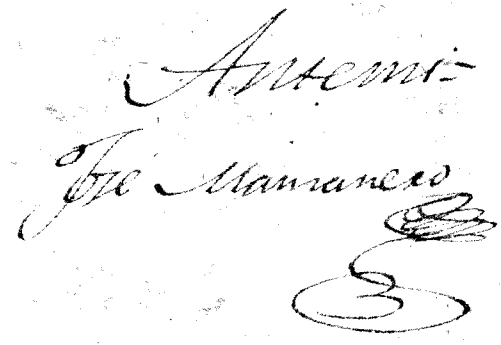 Antemi=
José Manzanero